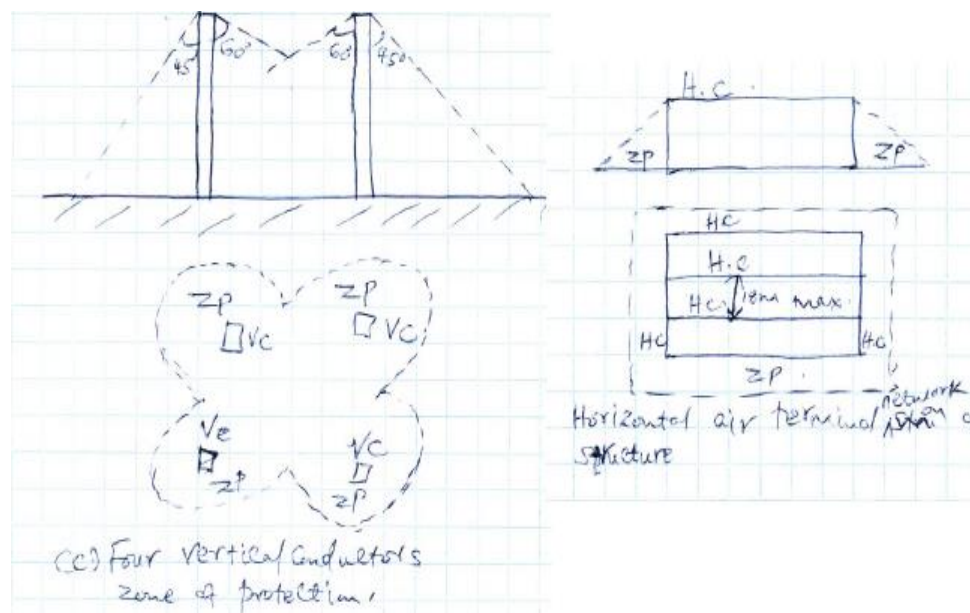 45°
60°
60°
45°
ZP
VC
ZP
VC
VC
ZP
VC
ZP
(c) Four vertical conductors
zone of protection.
H.C.
ZP
ZP
HC
H.C
HC
max.
HC
HC
ZP.
Horizontal air terminal network
structure